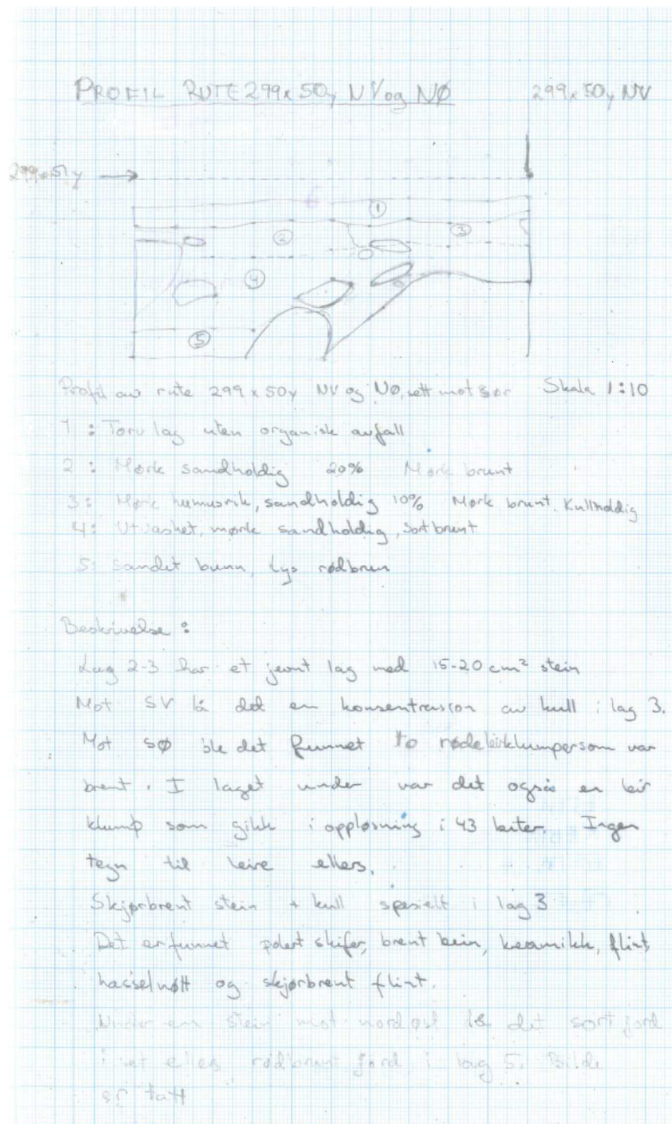 PROFIL RUTE 299x 50y NV og NØ
299x 50y NV
299x51y
1
2
3
4
5
Profil av rute 299x50y NV og NØ, sett mot sør Skala 1:10
1: Torvlag uten organisk avfall
2: Mørk sandholdig 20% Mørk brunt
3: Mørk humusrik, sandholdig 10% Mørk brunt. Kullholdig
4: Utvasket, mørk sandholdig, sort brunt
5: Sandet bunn, Lys rødbrun
Beskrivelse:
Lag 2-3 har et jevnt lag med 15-20 cm² stein
Mot SV lå det en konsentrasjon av kull i lag 3.
Mot SØ ble det funnet to røde leirklumper som var
brent. I laget under var det også en leir
klump som gikk i oppløsning i 43 bøtter. Ingen
tegn til leire ellers.
Skjørbrent stein + kull spesielt i lag 3
Det er funnet polert skifer, brent bein, keramikk, flint,
hasselnøtt og skjørbrent flint.
Under en stein mot nordøst lå det sort jord
i et ellers rødbrunt jord i lag 5. Bilde
er tatt